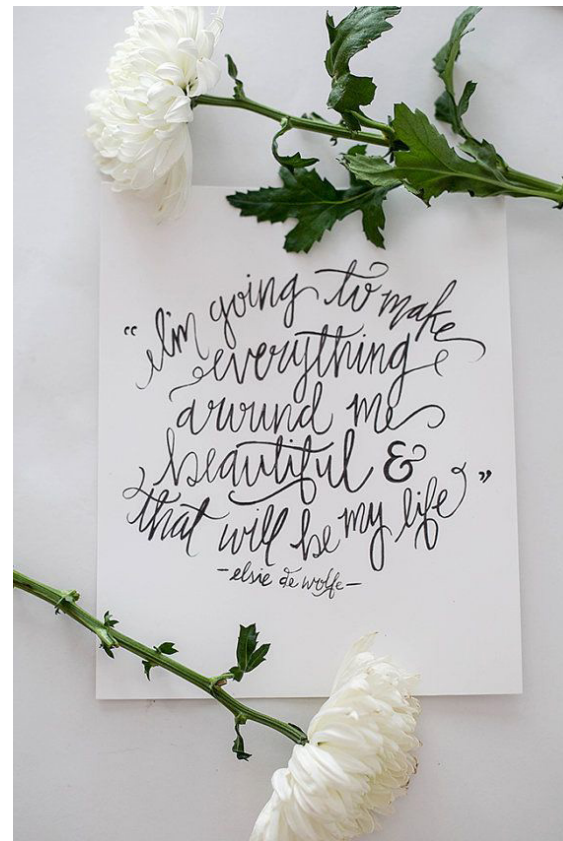 “I'm going to make
everything
around me
beautiful &
that will be my life”
-elsie de wolfe-